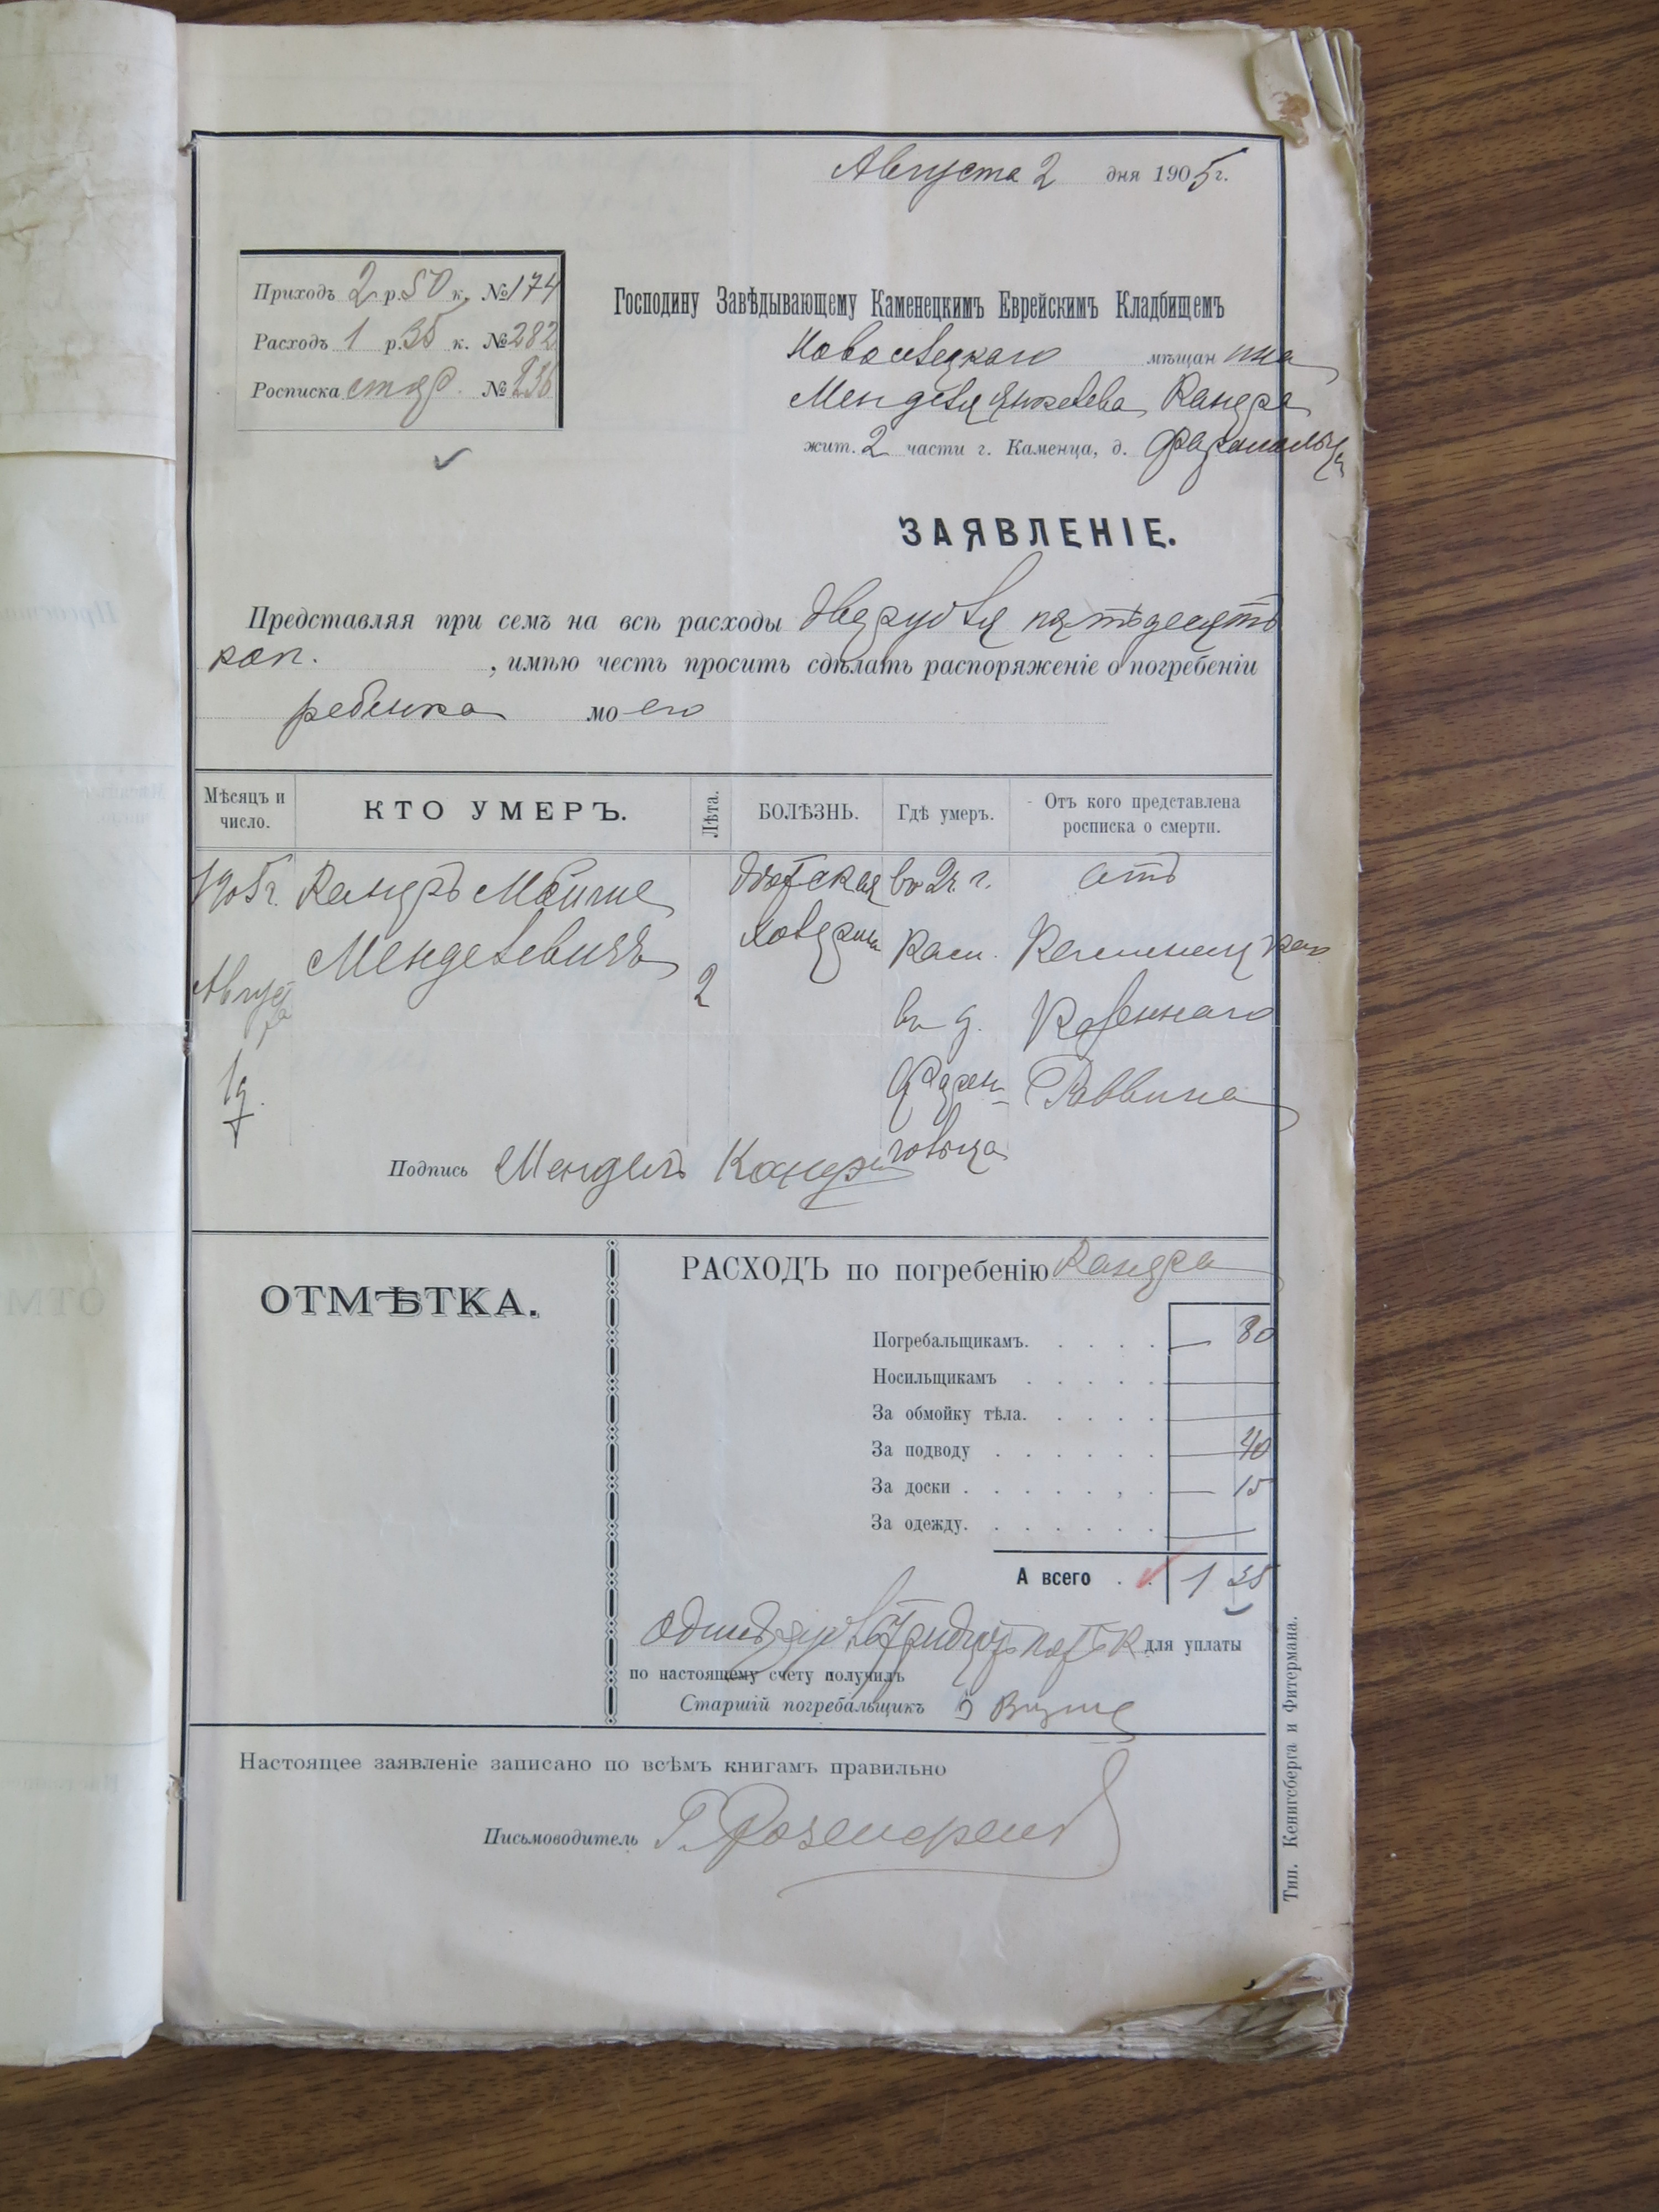 Августа 2 дня 1905 г.
Приходъ 2 р. 50 к. № 174
Расходъ 1 р. 35 к. № 282
Росписка № 236
Господину Завѣдывающему Каменецкимъ Еврейскимъ Кладбищемъ
мѣщанина
Менделя
жит. 2 части г. Каменца, д.
ЗАЯВЛЕНІЕ.
Представляя при семъ на всѣ расходы два рубля пятьдесятъ
коп. , имѣю честь просить сдѣлать распоряженіе о погребеніи
ребенка моего
Мѣсяцъ и число. КТО УМЕРЪ. Лѣта. БОЛѢЗНЬ. Гдѣ умеръ. Отъ кого представлена росписка о смерти.
1905 г. Мойше дѣтская во 2 ч. г. отъ
Менделевичъ Кам. Каменецкаго
Августа 2 въ д. Казеннаго
1 д. Раввина
Подпись Мендель
ОТМѢТКА.
РАСХОДЪ по погребенію
Погребальщикамъ. — 80
Носильщикамъ
За обмойку тѣла.
За подводу — 40
За доски — 15
За одежду.
А всего 1 35
Одинъ рубль тридцать пять к для уплаты
по настоящему счету получилъ
Старшій погребальщикъ
Настоящее заявленіе записано по всѣмъ книгамъ правильно
Письмоводитель
Тип. Кенигсберга и Фитермана.